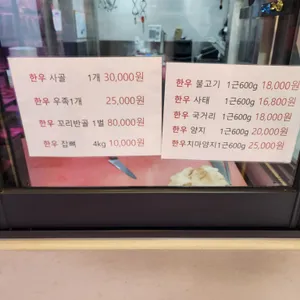 한우 사골 1개 30,000원
한우 우족1개 25,000원
한우 꼬리반골 1벌 80,000원
한우 잡뼈 4kg 10,000원
한우 불고기 1근600g 18,000원
한우 사태 1근600g 16,800원
한우 국거리 1근600g 18,000원
한우 양지 1근600g 20,000원
한우치마양지1근600g 25,000원